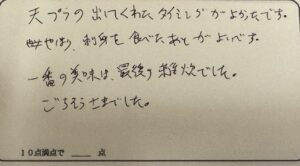 天プラの出てくれたタイミングがよかったです。
やはり、刺身を食べたあとがよいです。
一番の美味は、最後の雑炊でした。
ごちそうさまでした。
10点満点で ____ 点